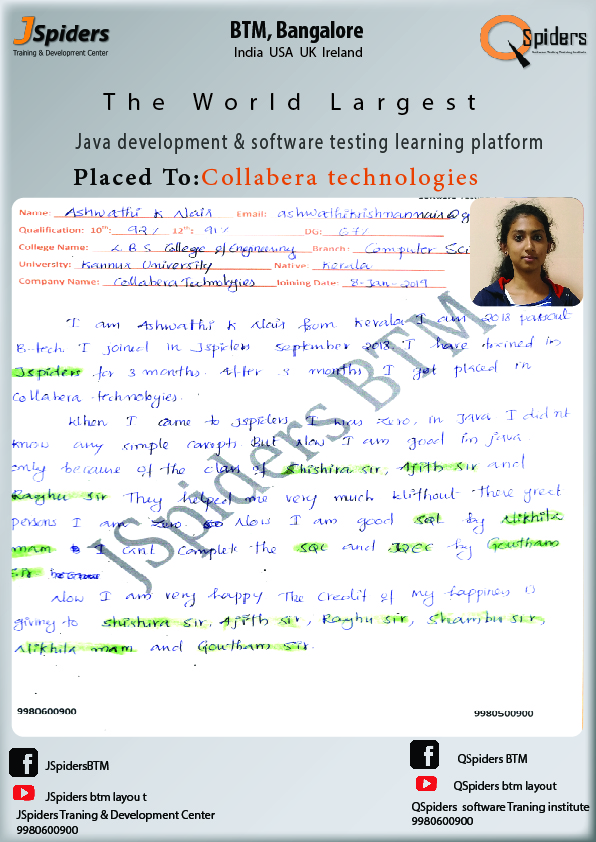 JSpiders
Training & Development Center
BTM, Bangalore
India USA UK Ireland
QSpiders
The World Largest
Java development & software testing learning platform
Placed To:Collabera technologies
Name: Ashwathi K Nair Email: ashwathikrishnannair@g
Qualification: 10th: 92% 12th: 91% DG: 67%
College Name: L.B.S College of Engineering Branch: Computer Sci
University: Kannur University Native: Kerala
Company Name: Collabera Technologies Joining Date: 8-Jan-2019
I am Ashwathi K Nair from Kerala I am 2018 passout
B-tech. I joined in Jspiders September 2018. I have trained in
Jspiders for 3 months. After 3 months I got placed in
Collabera technologies.
When I came to jspiders, I was zero, in Java I didnt
know any simple But Now I am good in java
only because of the class of Shishira sir, Ajith sir and
Raghu sir They helped me very much Without there great
persons I am zero. Now I am good SQL by Nikhila
mam I cant complete the SQL and JDBC by Goutham
Sir
Now I am very happy The credit of my happines is
giving to Shishira Sir, Ajith sir, Raghu sir, Shambu sir,
Nikhila mam and Goutham Sir.
JSpiders BTM
9980600900 9980500900
JSpidersBTM
JSpiders btm layou t
JSpiders Traning & Development Center
9980600900
QSpiders BTM
QSpiders btm layout
QSpiders software Traning institute
9980600900